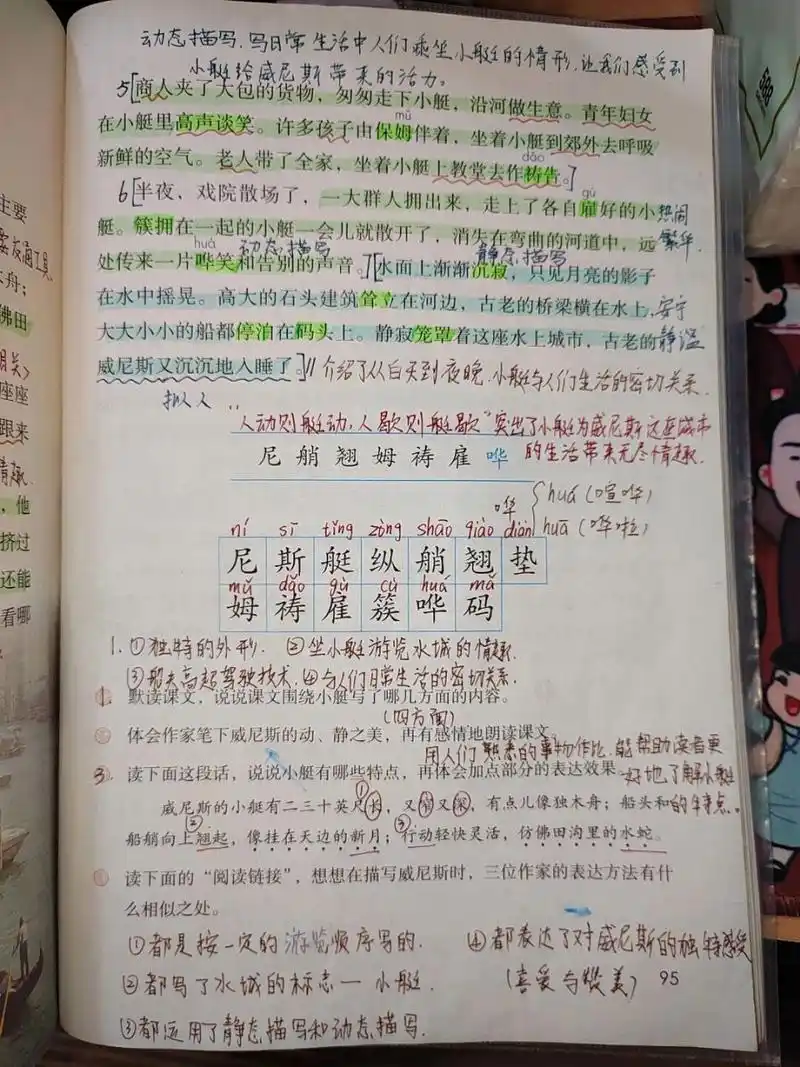 动态描写.写日常生活中人们乘坐小艇的情形,让我们感受到
小艇给威尼斯带来的活力.
5[商人夹了大包的货物,匆匆走下小艇,沿河做生意。青年妇女
在小艇里高声谈笑。许多孩子由保姆伴着,坐着小艇到郊外去呼吸
mǔ
新鲜的空气。老人带了全家,坐着小艇上教堂去作祷告。]
dǎo
6[半夜、戏院散场了,一大群人拥出来,走上了各自雇好的小 热闹
gù
艇。簇拥在一起的小艇一会儿就散开了,消失在弯曲的河道中,远 繁华.
huá 动态描写 静态描写
处传来一片哗笑和告别的声音。7[水面上渐渐沉寂,只见月亮的影子
在水中摇晃。高大的石头建筑耸立在河边,古老的桥梁横在水上, 安宁
大大小小的船都停泊在码头上。静寂笼罩着这座水上城市,古老的 静谧
威尼斯又沉沉地入睡了。]// 介绍了从白天到夜晚.小艇与人们生活的密切关系.
拟人
“人动则艇动,人歇则艇歇”突出了小艇为威尼斯这座城市
的生活带来无尽情趣.
尼 艄 翘 姆 祷 雇 哗
哗 huá(喧哗)
huā(哗啦)
ní sī tǐng zòng shāo qiào diàn
尼 斯 艇 纵 艄 翘 垫
mǔ dǎo gù cù huá mǎ
姆 祷 雇 簇 哗 码
1. ①独特的外形. ②坐小艇游览水城的情趣.
③船夫高超驾驶技术. ④与人们日常生活的密切关系.
1. 默读课文,说说课文围绕小艇写了哪几方面的内容。
(四方面)
体会作家笔下威尼斯的动、静之美,再有感情地朗读课文。
用人们熟悉的事物作比.能帮助读者更
3. 读下面这段话,说说小艇有哪些特点,再体会加点部分的表达效果。
好地了解小艇
的特点.
威尼斯的小艇有二三十英尺长,又窄又深,有点儿像独木舟;船头和
船艄向上翘起,像挂在天边的新月;行动轻快灵活,仿佛田沟里的水蛇。
读下面的“阅读链接”,想想在描写威尼斯时,三位作家的表达方法有什
么相似之处。
①都是按一定的游览顺序写的. ④都表达了对威尼斯的独特感受
②都写了水城的标志一小艇. (喜爱与赞美) 95
③都运用了静态描写和动态描写.
主要
木舟;
佛田
座座
跟来
情趣.
,他
挤过
还能
看哪